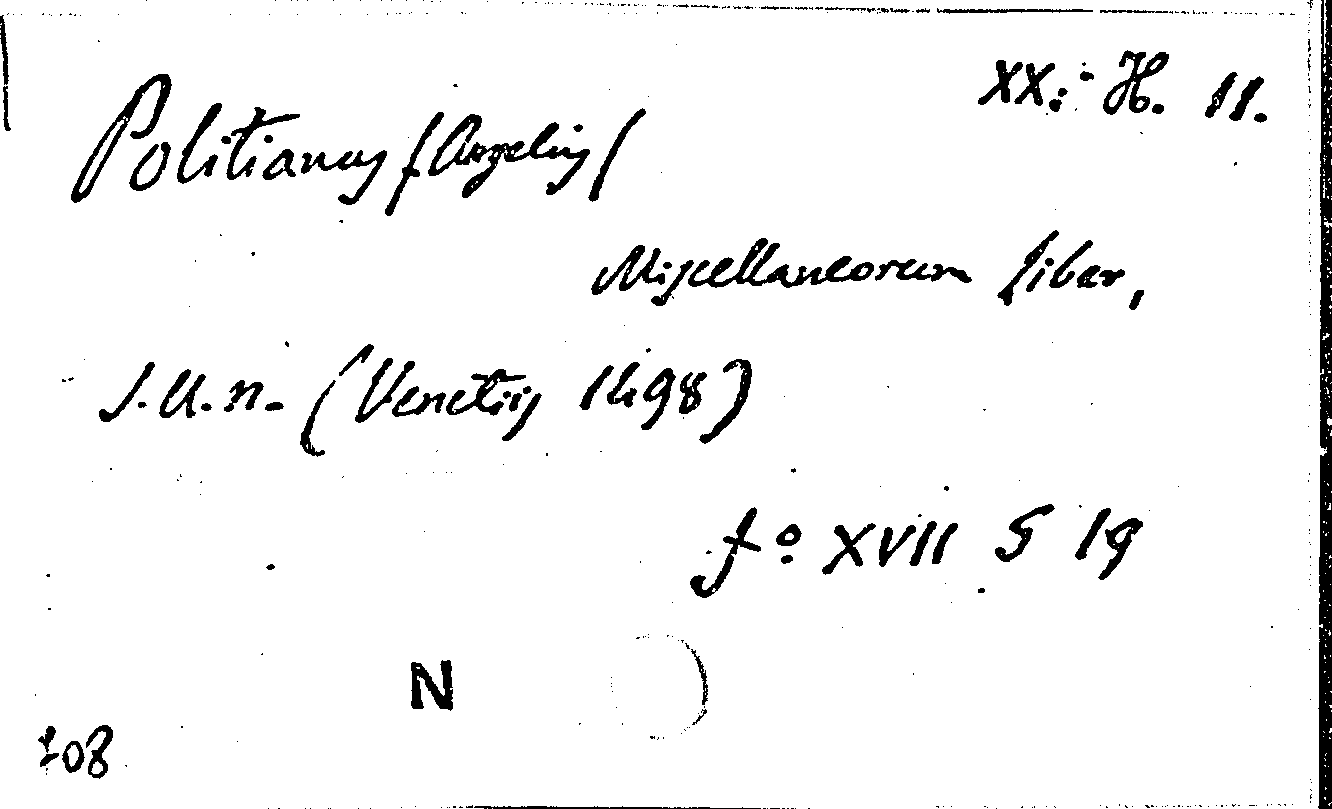 XX: H. 11.
Politianus (Angelus)
Miscellaneorum liber,
S.U.n. (Venetiis 1498)
fo XVII S 19
N
708